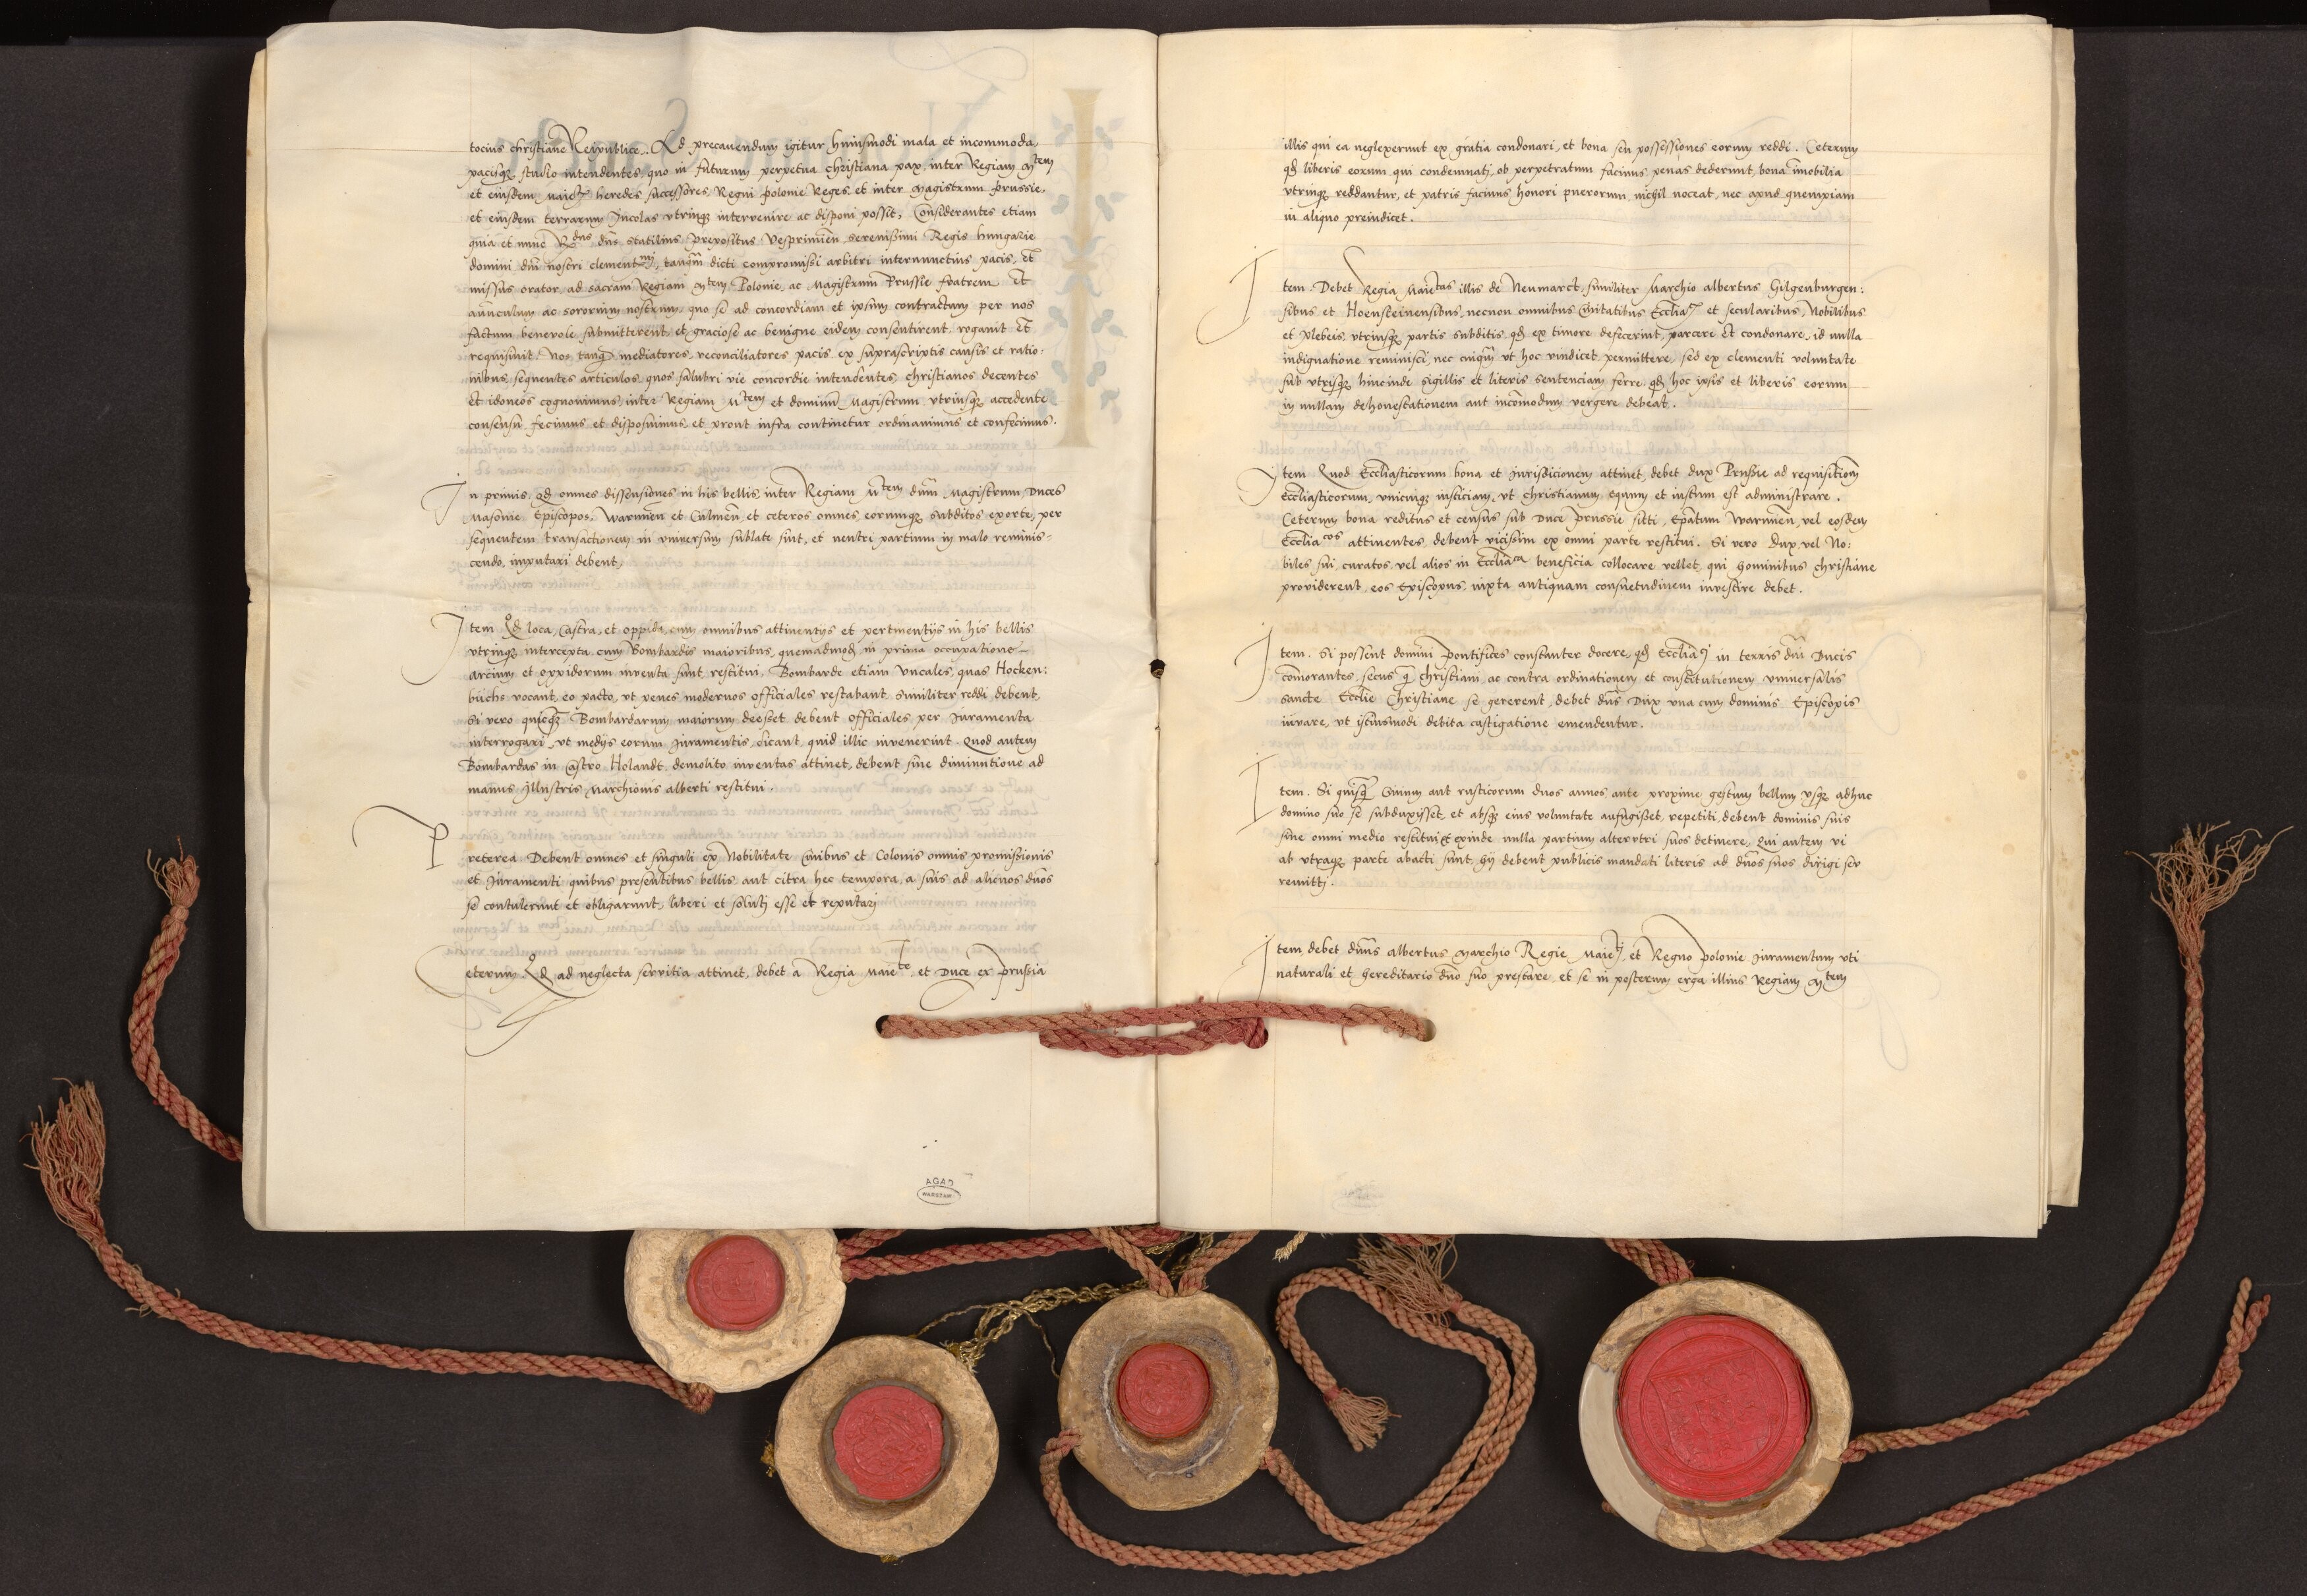 tocius christiane Reipublice. Ad precauendum igitur huiusmodi mala et incommoda,
pacisq studio intendentes, quo in futurum perpetua christiana pax, inter Regiam Mtem
et eiusdem heredes successores, Regni polonie Reges, et inter Magistrum prussie,
et eiusdem terrarum Incolas vtrinq intervenire ac disponi possit, Considerantes etiam
quia et nunc Rdus dns statilius prepositus Vesprimien serenissimi Regis hungarie
domini dni nostri clementmi, tanqm dicti compromissi arbitri internunctius pacis, et
missus orator, ad sacram Regiam Mtem Polonie, ac Magistrum Prussie fratrem et
auunculum ac sororium nostrum, quo se ad concordiam et ipsum contractum per nos
factum beneuole submitterent, et graciose ac benigne eidem consentirent, rogauit et
requisiuit. Nos tanq mediatores, reconciliatores pacis ex suprascriptis causis et ratio:
nibus, sequentes articulos, quos salubri vie concordie intendentes, christianos decentes
et idoneos cognouimus, inter Regiam Mtem et dominum Magistrum vtriusq accedente
consensu fecimus et disposuimus, et prout infra continetur ordinauimus et confecimus.
In primis, qd omnes dissensiones in his bellis, inter Regiam Mtem dnm Magistrum Duces
Masouie Episcopos, Warmien et Culmen, et ceteros omnes, eorumq subditos exorte, per
sequentem transactionem in vniuersum sublate sint, et neutri partium in malo reminis-
cendo, imputari debent,
Item Qd loca, Castra, et oppida, cum omnibus attinentijs et pertinentijs in his bellis
vtrinq intercepta, cum Bombardis maioribus, quemadmod in prima occupatione
arcium et oppidorum inuenta sunt, restitui. Bombarde etiam Vncales, quas Hocken:
buchs vocant, eo pacto, vt penes modernos officiales restabant, similiter reddi debent,
Si vero quicq Bombardarum maiorum deesset debent officiales per Iuramenta
interrogari, vt medijs eorum Iuramentis dicant, quid illic inuenerint. Quod autem
Bombardas in Castro Holandt demolito inuentas attinet, debent sine diminutione ad
manus Illustris Marchionis alberti restitui.
Preterea Debent omnes et singuli ex Nobilitate Ciuibus et Colonis omnis promissionis
et Iuramenti quibus presentibus bellis, aut citra hec tempora, a suis ad alienos dnos
se contulerunt et obligarunt, liberi et soluti esse et reputari
Ceterum Qd ad neglecta seruitia attinet, debet a Regia Maiete, et Duce ex prussia
AGAD
WARSZAWA
illis qui ea neglexerunt ex gratia condonari, et bona seu possessiones eorum reddi. Ceterum
qd liberis eorum, qui condemnati, ob perpetratum facinus, penas dederunt, bona imobilia
vtrinq reddantur, et patris facinus honori puerorum nichil noceat, nec apud quempiam
in aliquo preiudicet.
Item Debet Regia Maietas illis de Neumarct, similiter Marchio albertus Gilgenburgen:
sibus et Hoensteinensibus, necnon omnibus Ciuitatibus et secularibus, Nobilibus
et Plebeis, vtriusq partis subditis, qd ex timore defecerint, parcere et condonare, id nulla
indignatione reminisci, nec cuiqm vt hoc vindicet permittere, sed ex clementi voluntate
sub vtriusq hincinde sigillis et literis sentenciam ferre, qd hoc ipsis et liberis eorum
in nullam dehonestationem aut incomodum vergere debeat.
Item Quod Eccliasticorum bona et Iurisdicionem attinet, debet dux Prussie ad requisitionem
Eccliasticorum, vnicuiq iusticiam, vt christianum, equum et iustum est administrare.
Ceterum bona reditus et census sub Duce prussie sitti, Epatum Warmien, vel eosdem
Eccliacos attinentes, debent vicissim ex omni parte restitui. Si vero Dux vel No:
biles sui, curatos, vel alios in Eccliaca beneficia collocare vellet, qui hominibus christiane
prouiderent, eos Episcopus, iuxta antiquam consuetudinem inuestire debet.
Item. Si possent domini pontifices constanter docere, qd in terris dni Ducis
comorantes, secus q christiani ac contra ordinationem et constitutionem vniuersalis
sancte Ecclie Christiane se gererent, debet dns Dux vna cum dominis Episcopis
iuuare, vt huiusmodi debita castigatione emendentur.
Item. Si quisq Ciuium aut rusticorum duos annos, ante proxime gestum bellum vsq adhuc
domino suo se subduxisset, et absq eius voluntate aufugisset, repetiti, debent dominis suis
sine omni medio restitui, et exinde nulla partium alterutri suos detinere, Qui autem vi
ab vtraq parte abacti sunt, hij debent publicis mandati literis ad dnos suos dirigi seu
remitti.
Item debet dnus albertus Marchio Regie et Regno polonie Iuramentum vti
naturali et hereditario dno suo prestare, et se in posterum erga illius Regiam Mtem